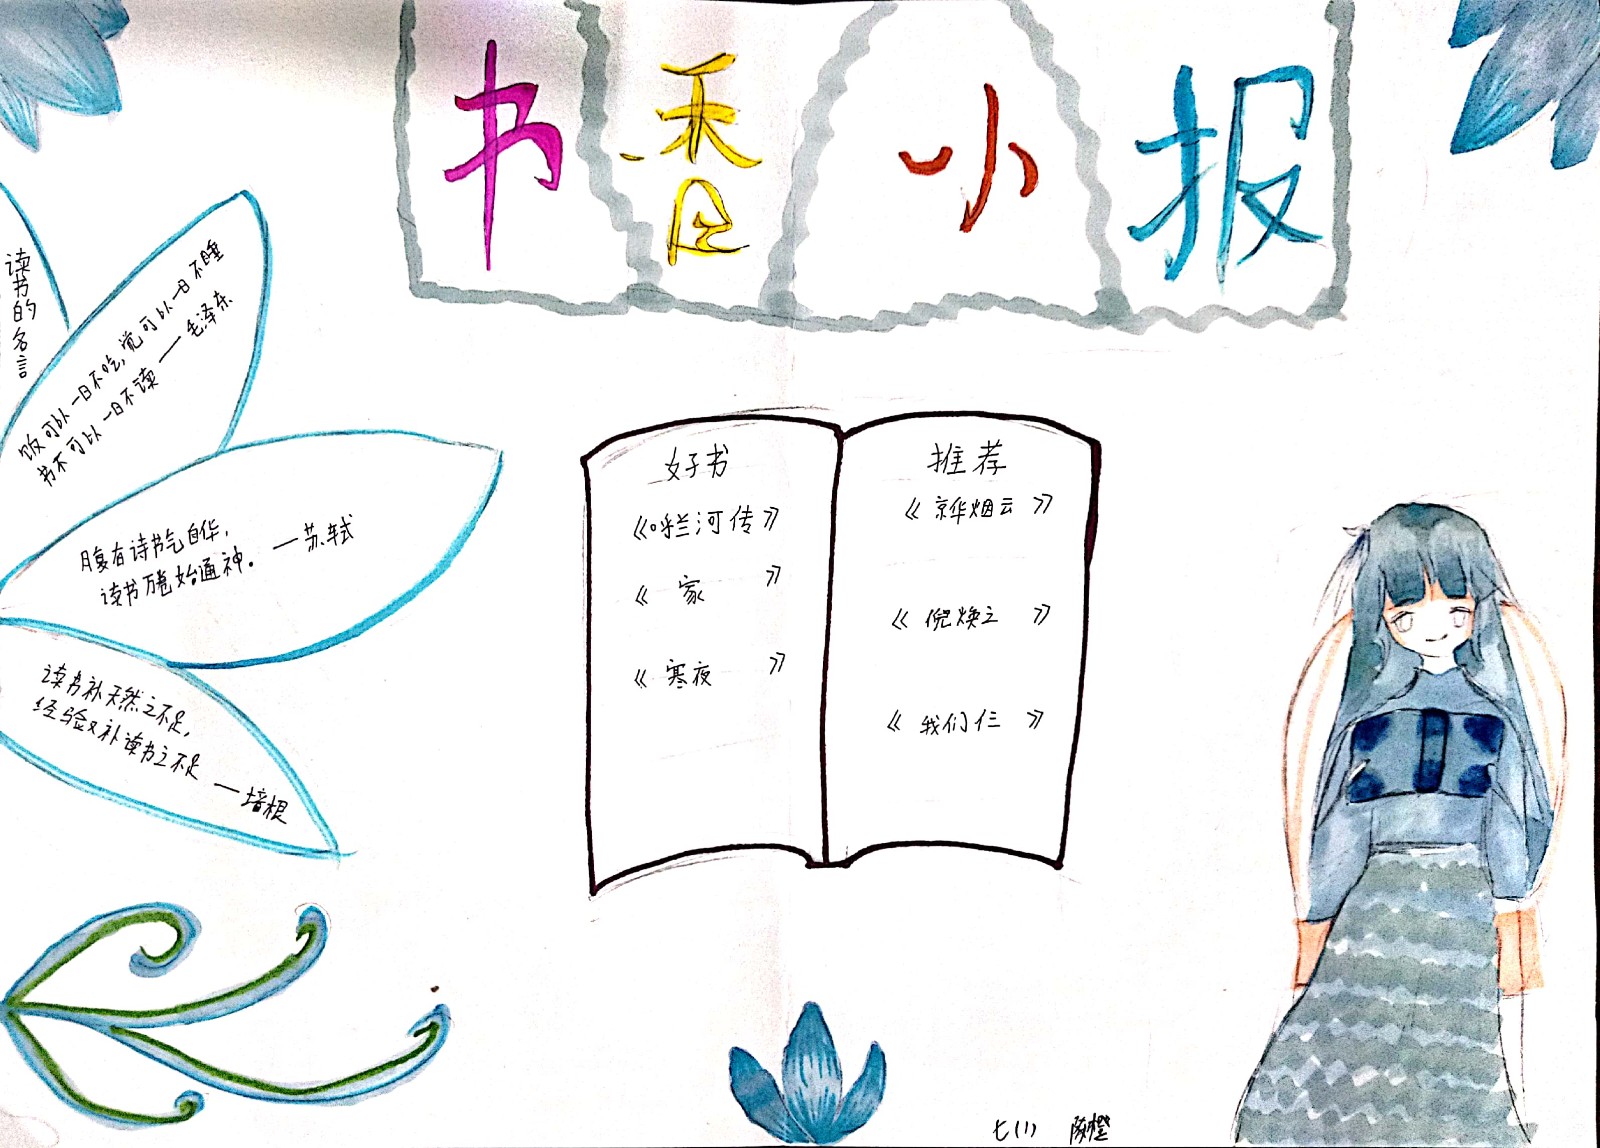 书香小报
读书的名言
饭可以一日不吃,觉可以一日不睡
书不可以一日不读——毛泽东
腹有诗书气自华,
读书万卷始通神。—苏轼
读书补天然之不足,
经验又补读书之不足
—培根
好书
《呼兰河传》
《家》
《寒夜》
推荐
《京华烟云》
《倪焕之》
《我们仨》
七(1) 陈橙